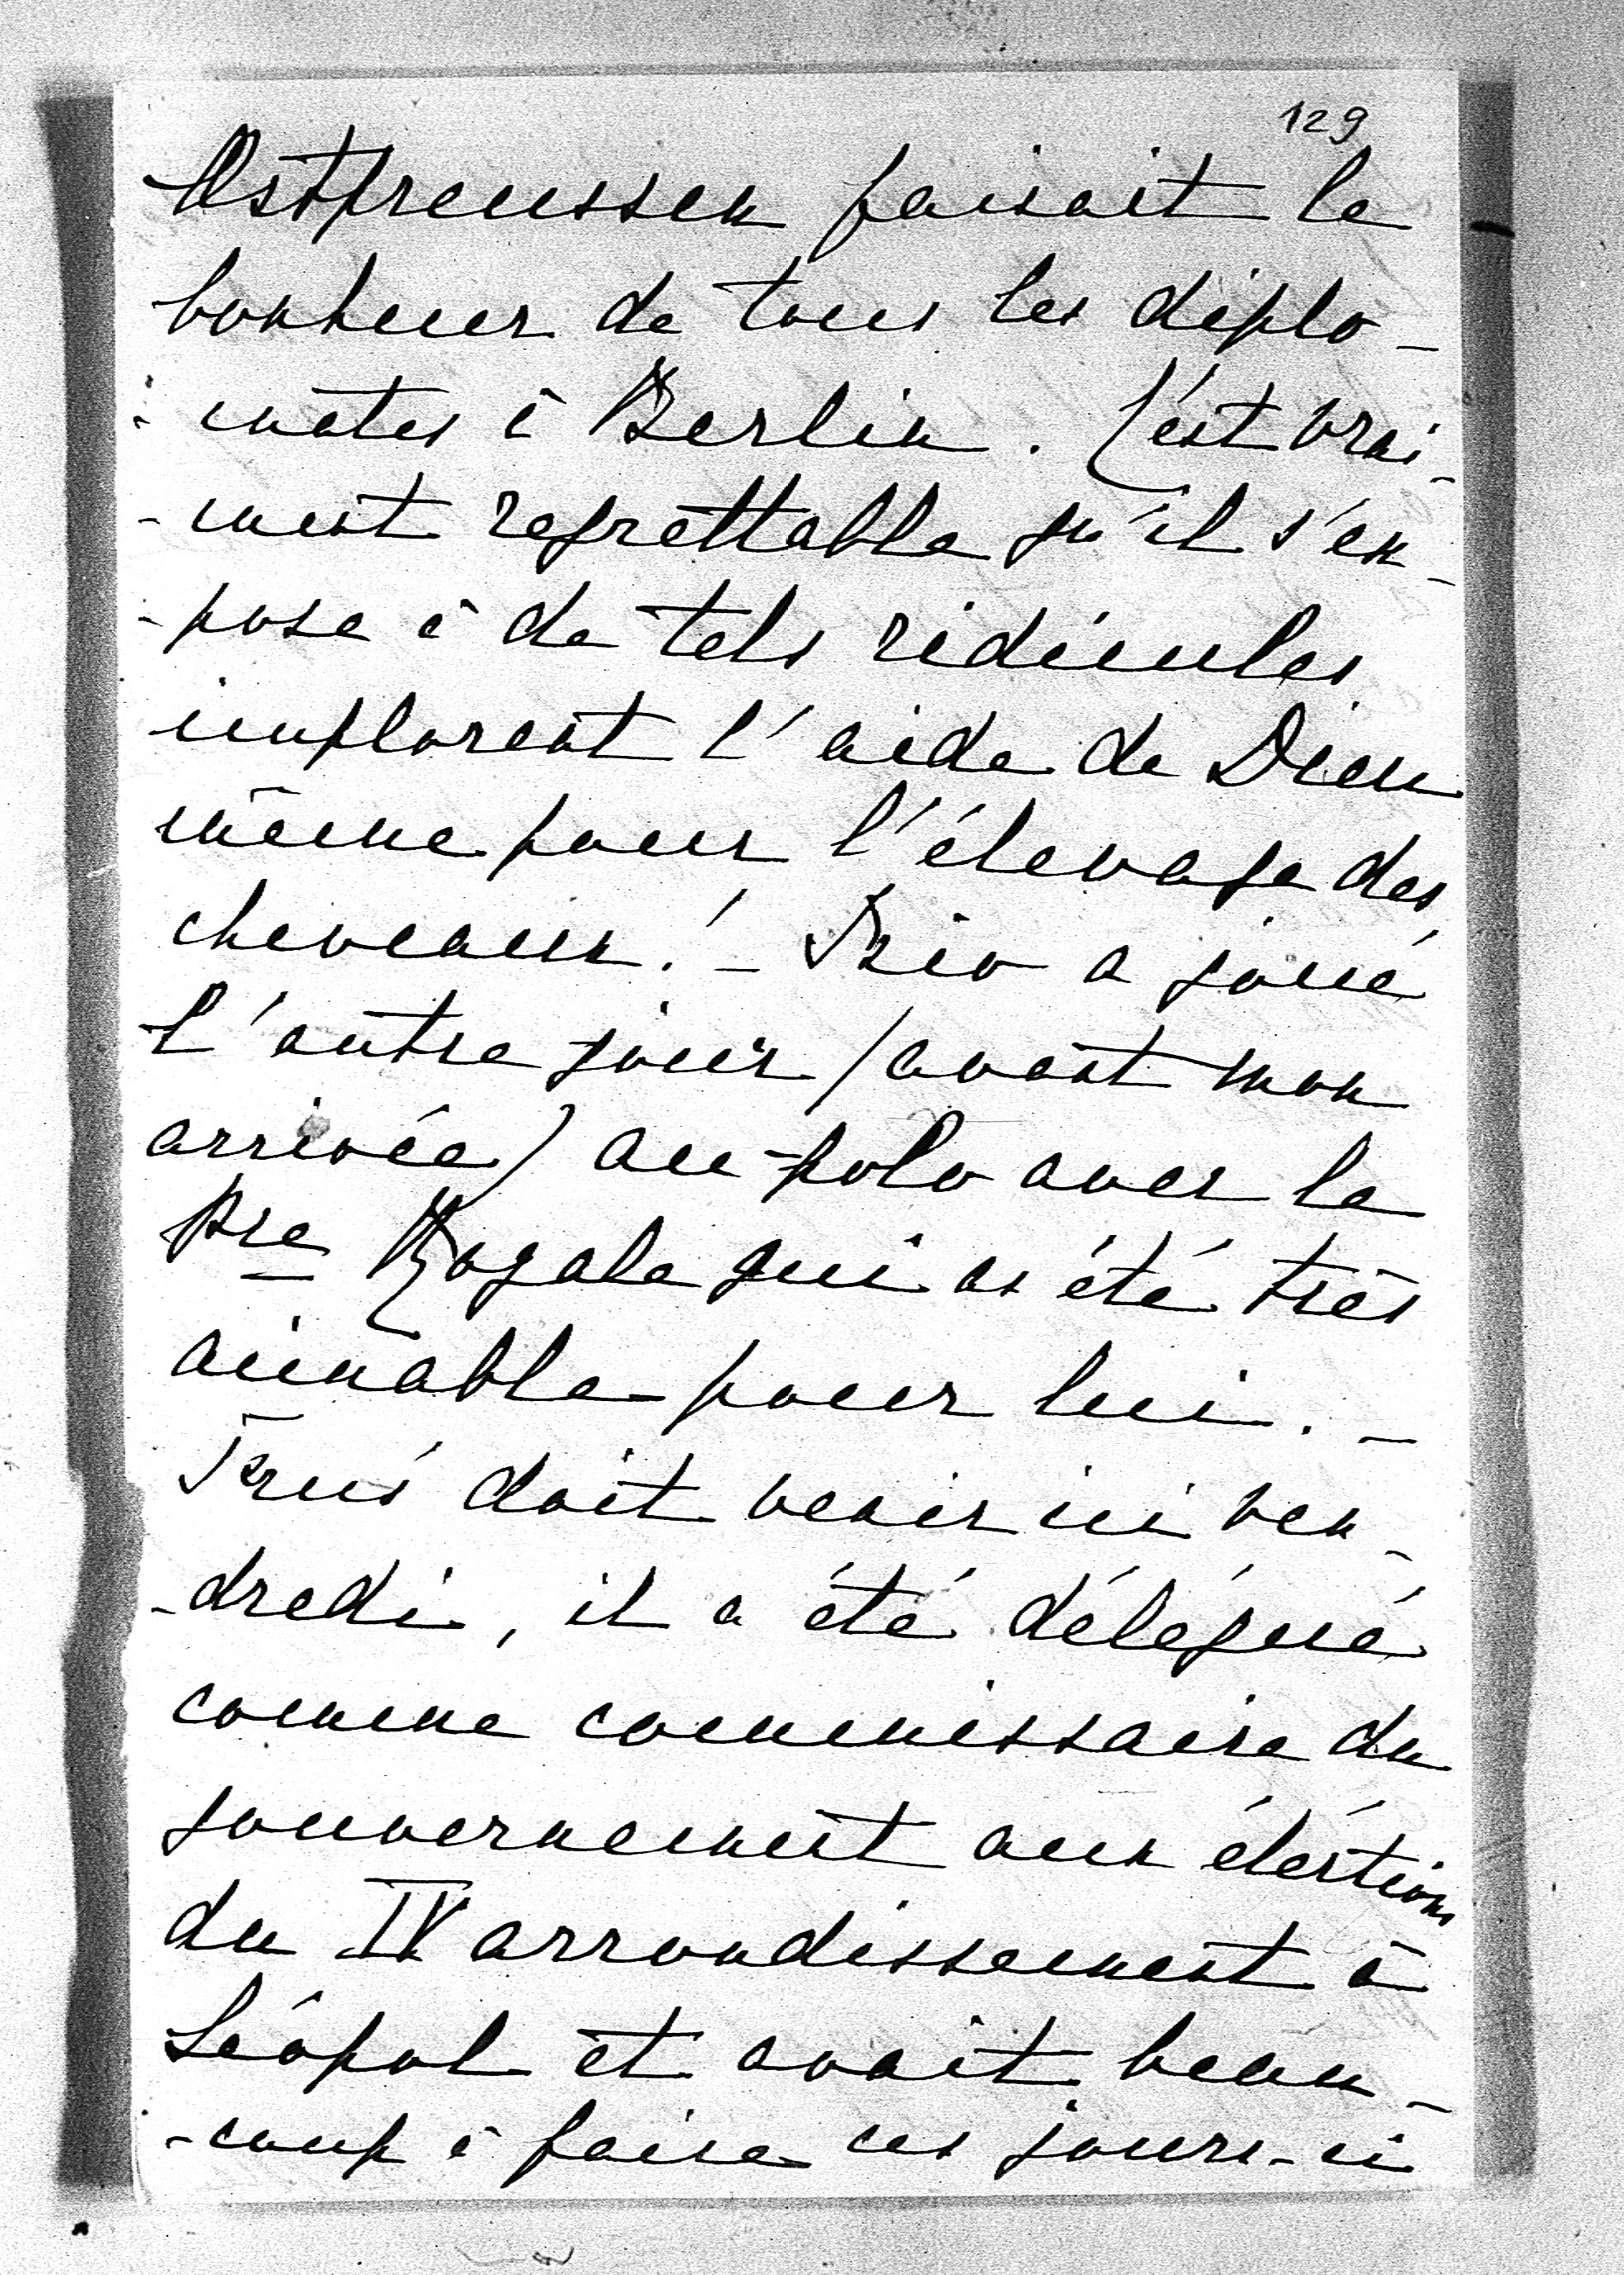 129
Ostpreussen faisait le
bonheur de tous les diplo-
-mates à Berlin. C'est vrai-
-ment regrettable qu'il s'ex-
-pose à de tels ridicules
implorant l'aide de Dieu
même pour l'élevage des
chevaux! - a joué
l'autre jour (avant mon
arrivée) au polo avec le
Pce qui a été très
aimable pour lui. -
doit venir ici ven-
-dredi, il a été délégué
comme commissaire du
gouvernement aux élections
du IV arrondissement à
Léopol et avait beau-
-coup à faire ces jours-ci